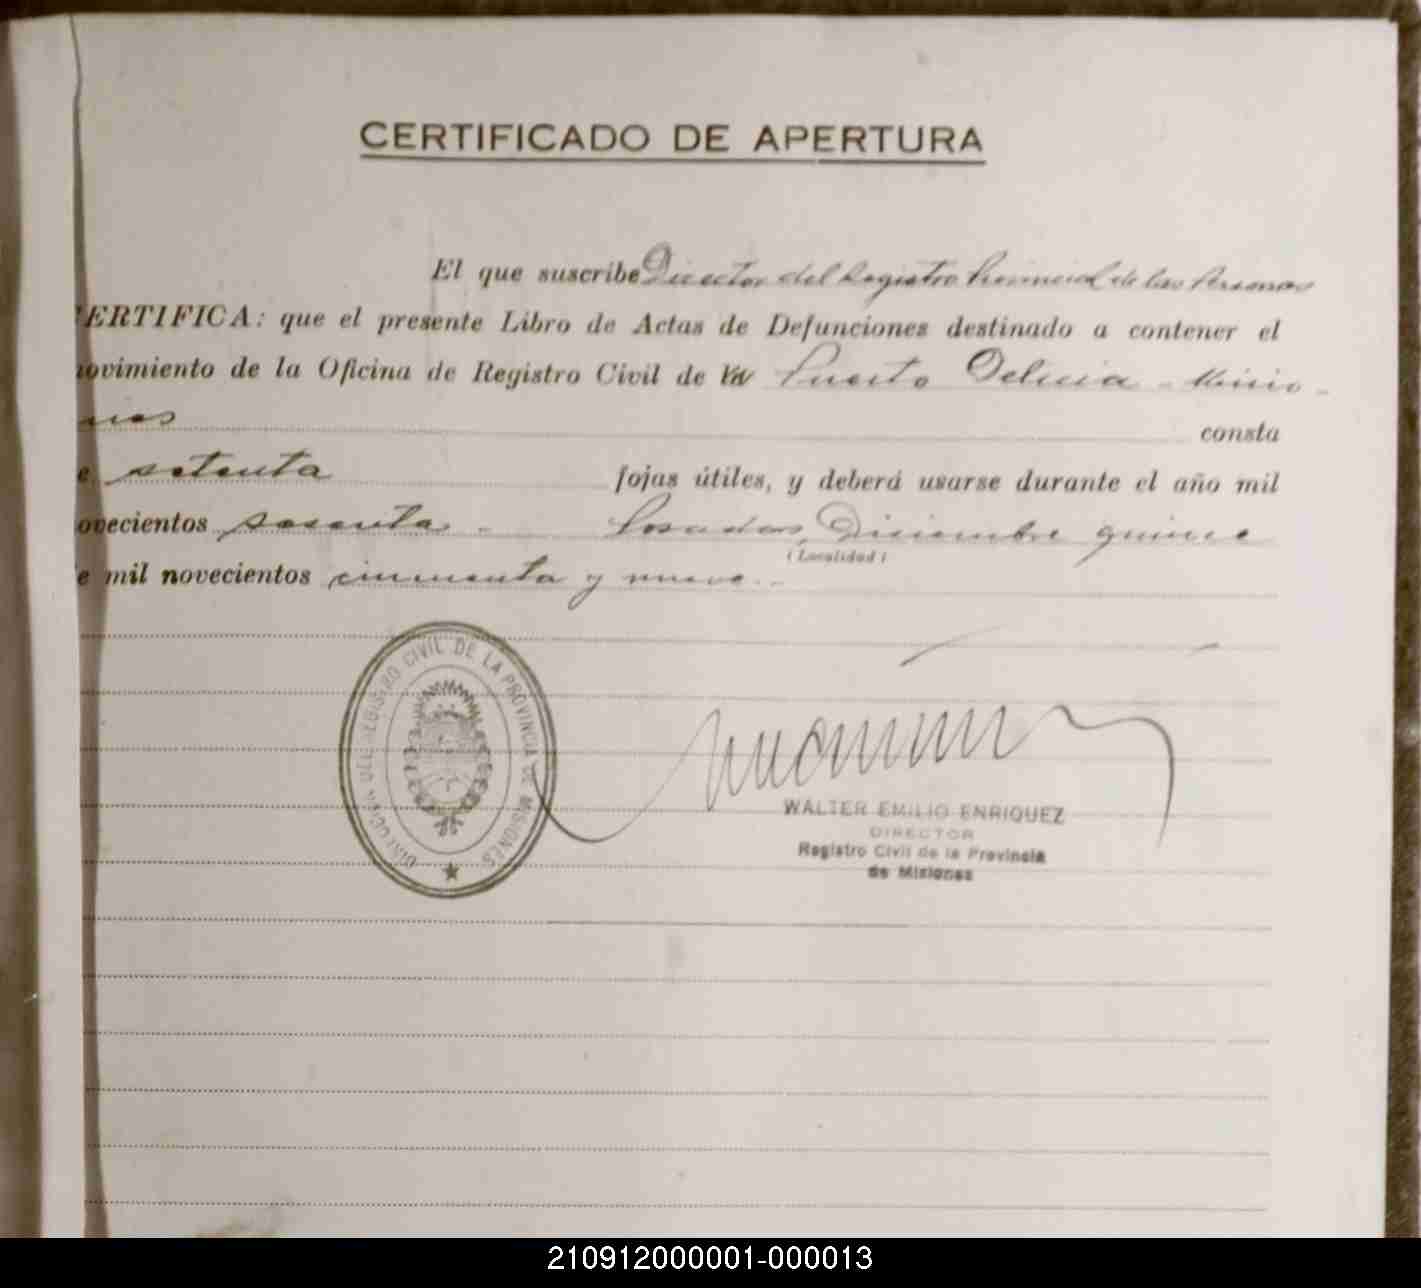 CERTIFICADO DE APERTURA
El que suscribe Director del Registro Provincial de las Personas
ERTIFICA: que el presente Libro de Actas de Defunciones destinado a contener el
ovimiento de la Oficina de Registro Civil de Puerto Delicia - Misio-
nes consta
e setenta fojas útiles, y deberá usarse durante el año mil
ovecientos sesenta. - Posadas, Diciembre quince
(Localidad)
e mil novecientos cincuenta y nueve. -
DIRECCION DEL REGISTRO CIVIL DE LA PROVINCIA DE MISIONES
WALTER EMILIO ENRIQUEZ
DIRECTOR
Registro Civil de la Provincia
de Misiones
210912000001-000013